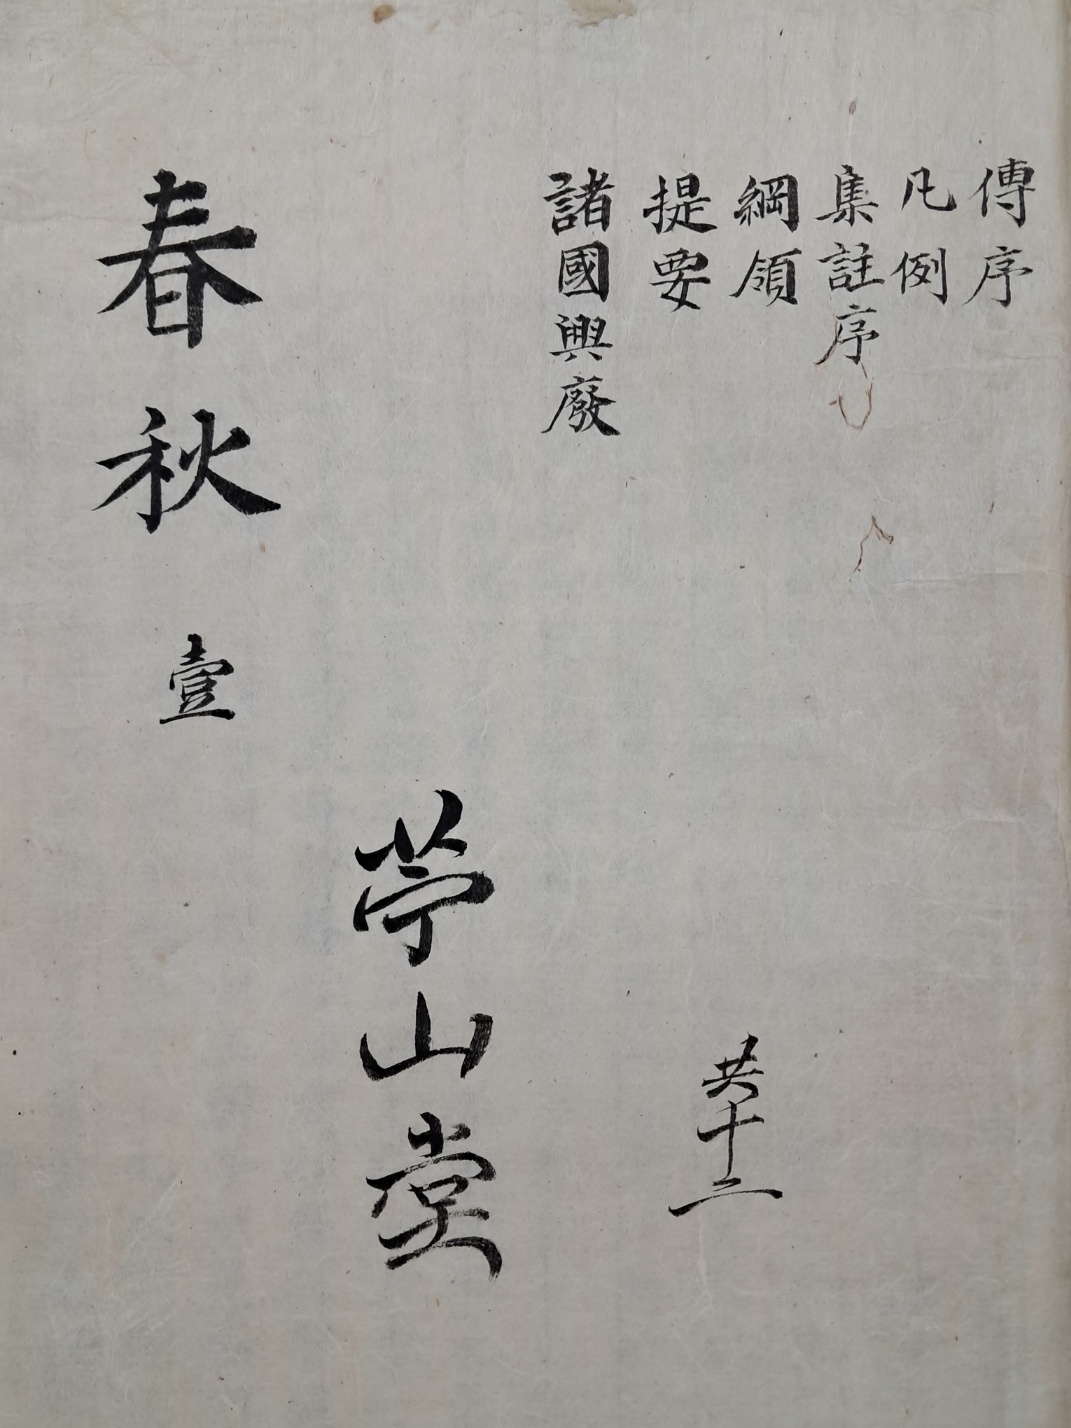 傳序
凡例
集註序
綱領
提要
諸國興廢
共十二
苧山堂
春秋
壹